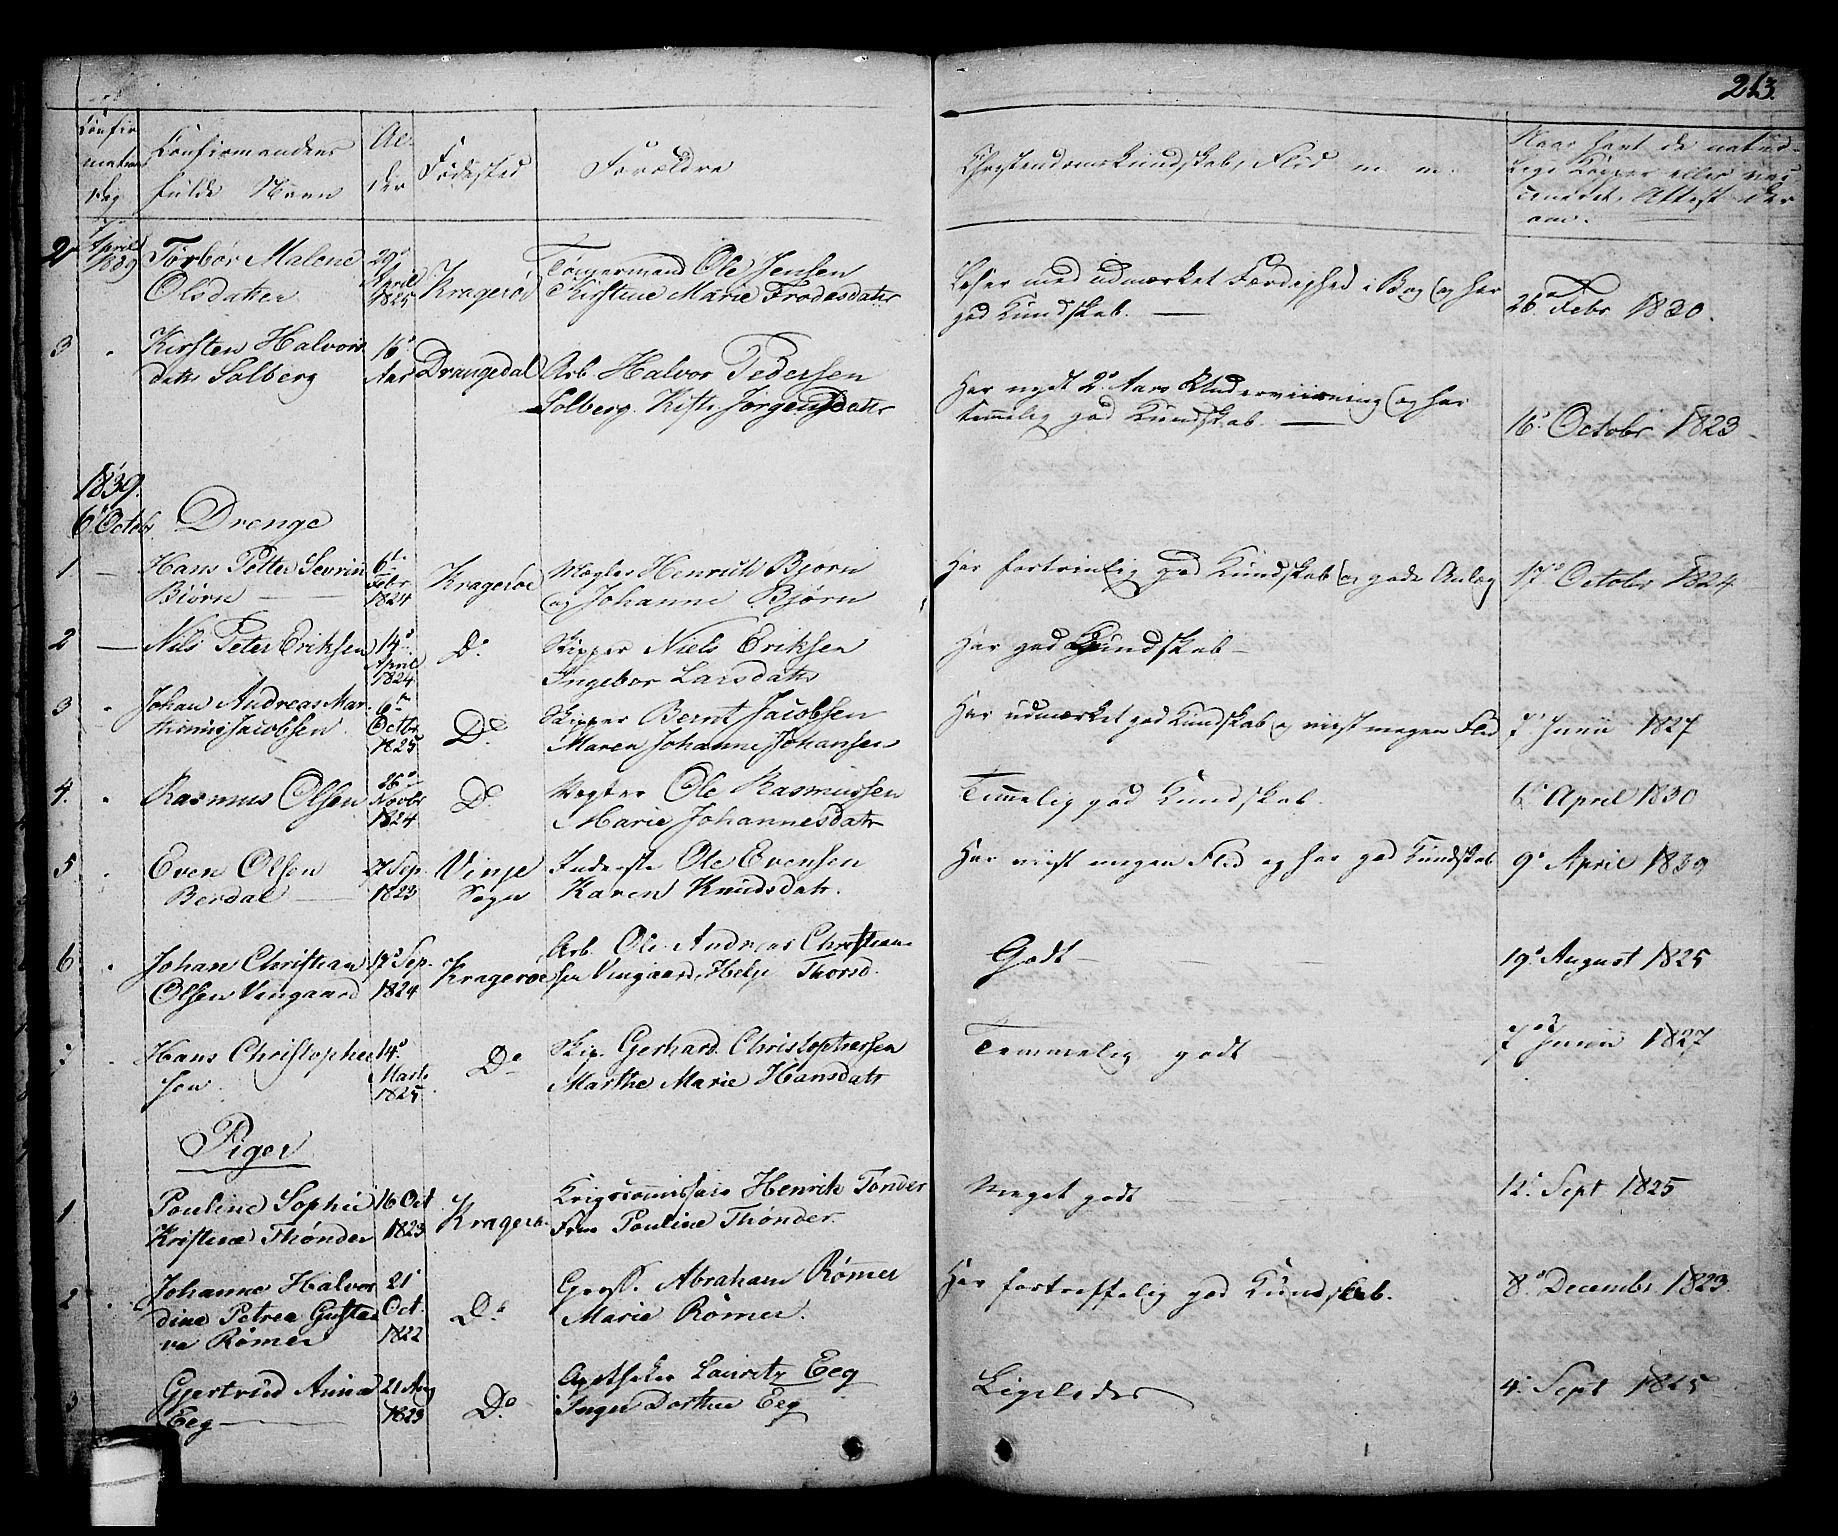 213.
Confir
mations
Dag
Confirmandens
fulde Navn
Al-
der
Fødested
Forældre
Christendomskundskab, Flid m. m.
Naar havt de natur-
lige Kopper eller vac
cineret, Attest der
om.
2
April
1839
Torbor Malene
Olsdatter
29de
April
1825
Kragerøe
Tømmermand Ole Jensen
Kirstine Marie Frodesdatr
Læser med udmærket Færdighed i Bog og har
god Kundskab. —
26de Febr 1830.
3
Kirsten Halvors
datter Solberg
16
Aar
Drangedal
Arb. Halvor Pedersen
Solberg. Kiste Jørgensdatr
Har nydt 2de Aars Underviisning og har
temmelig god Kundskab. —
16. Octobr 1823
1839.
6 Octobr Drenge
1 — Hans Petter Sevrin
Biørn —
6te
Febr.
1824
Kragerøe
Mægler Henrich Bjørn
og Johanne Bjørn
Har fortrinlig god Kundskab og gode Anlæg
17de Octobr 1824
2 — Nils Peter Eriksen
14de
April
1824
Do
Skipper Niels Eriksen
Ingebor Larsdatr
Har god Kundskab —
3 Johan Andreas Mar
thinus Jacobsen.
6te
Octbr
1825
Do
Skipper Bernt Jacobsen
Maren Johanne Johansen
Har udmærket god Kundskab og viist megen Flid
7de Junii 1827
4. Rasmus Olsen
26de
Novbr
1824
Do
Vegter Ole Rasmussen
Marie Johannesdatr
Temmelig god Kundskab.
6te April 1830
5 Even Olsen
Berdal —
27 Sep.
1823
Vinje
Sogn
Inderste Ole Evensen
Karen Knudsdatr.
Har viist megen Flid og har god Kundskab
9de April 1839
6 Johan Christian
Olsen Vingaard
17de Sep.
1824
Kragerøe
Arb. Ole Andreas Christian-
sen Vingaard, Helje Thorsd.
Godt —
19de August 1825
7 Hans Christopher
sen
14de
Marts
1825
Do
Skip. Gerhard Christophersen
Marthe Marie Hansdatr
Temmelig godt —
7de Junii 1827
Piger
1 Pauline Sophie
Kristine Thønder
16 Oct
1823
Kragerøe
Krigscommissair Henrik Tønder
Fru Pauline Thønder.
Meget godt
12. Sept 1825
2 Johanne Halvor
dine Petrea Gusta
va Rømer
21
Oct.
1822
Do
Gross. Abraham Rømer
Marie Rømer.
Har fortreffelig god Kundskab.
8de Decembr 1823.
3 Gjertrud Anna
Eeg —
21 Aug
1823
Do
Apotheker Lauritz Eeg
Inger Dorthea Eeg
Ligeledes
4. Sept 1825